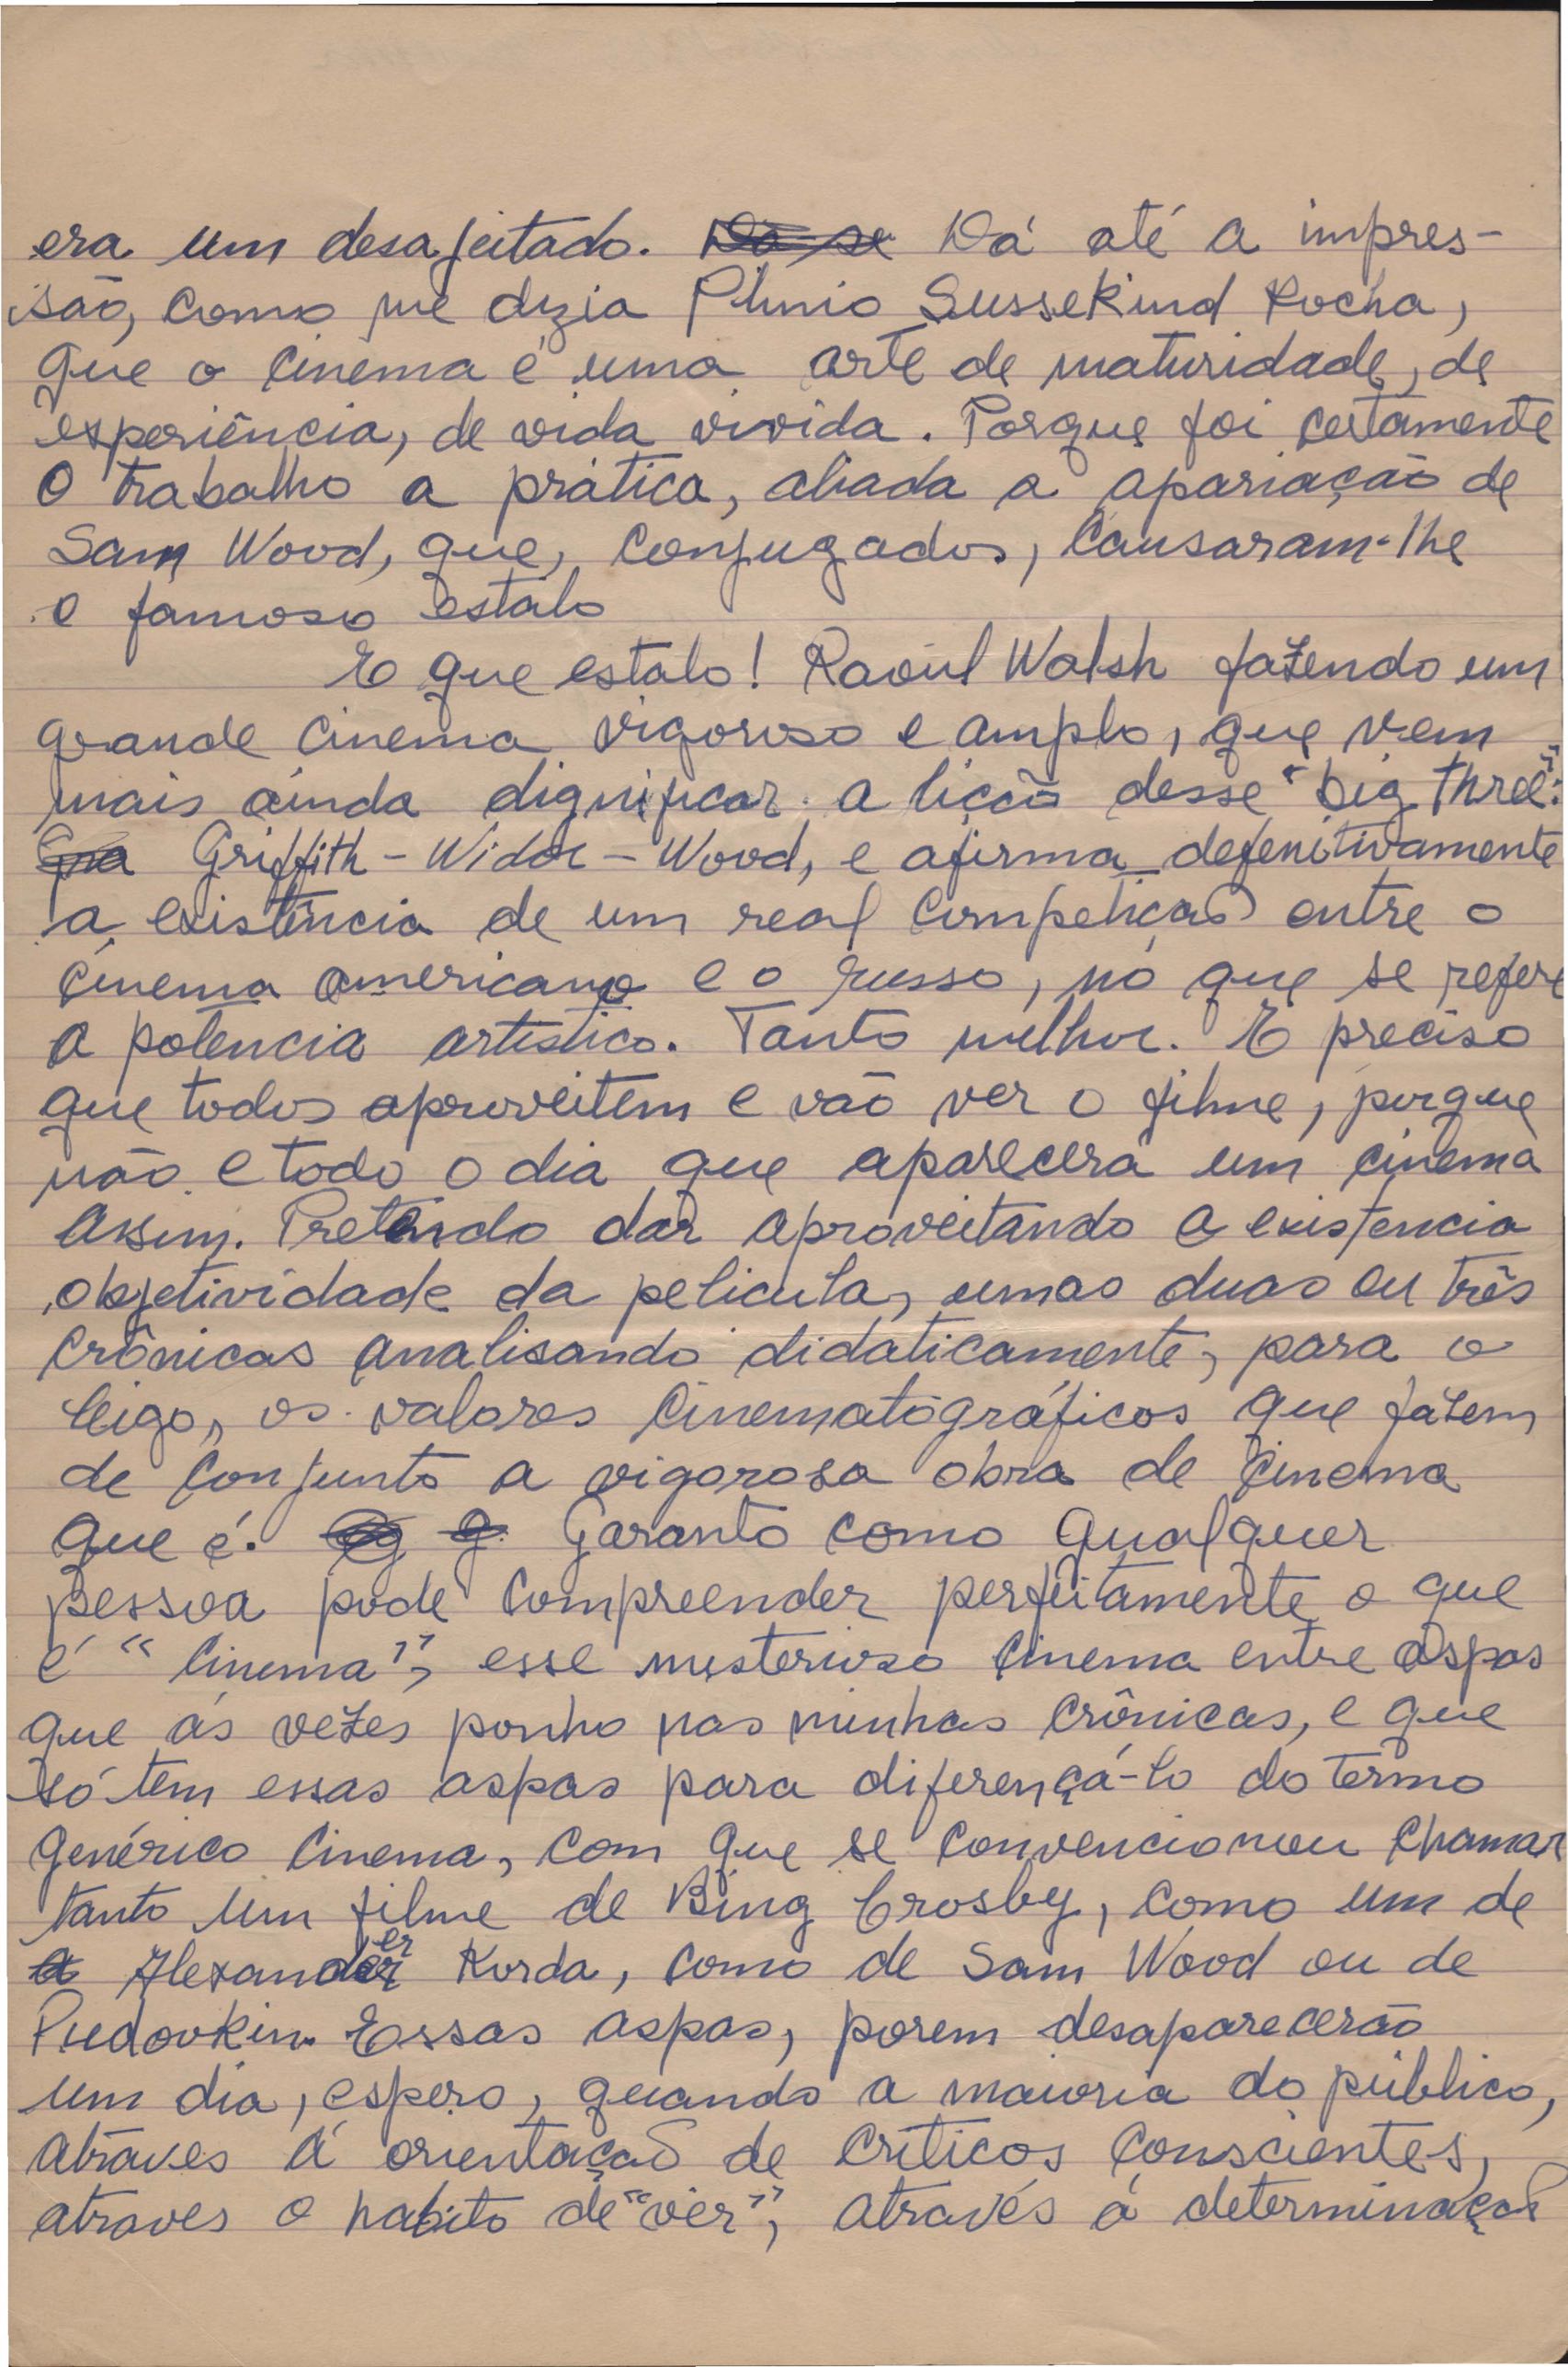 era um desajeitado. Dá até a impres-
são, como me dizia Plinio Sussekind Rocha,
que o cinema é uma arte de maturidade, de
experiência, de vida vivida. Porque foi certamente
o trabalho a prática, aliada a apariação de
Sam Wood, que, conjugados, causaram-lhe
o famoso estalo
E que estalo! Raoul Walsh fazendo um
grande cinema vigoroso e amplo, que vem
mais ainda dignificar a lição desse "big three":
Griffith - Widor - Wood, e afirma defenitivamente
a existência de um real competição entre o
cinema americano e o russo, no que se refere
a potencia artistica. Tanto melhor. E preciso
que todos aproveitem e vão ver o filme, porque
não e todo o dia que aparecerá um cinema
assim. Pretendo dar aproveitando a existencia
objetividade da pelicula, umas duas ou três
crônicas analisando didaticamente, para o
leigo, os valores cinematográficos que fazem
de conjunto a vigorosa obra de cinema
que é. Garanto como qualquer
pessoa pode compreender perfeitamente o que
é "cinema", esse misterioso cinema entre aspas
que ás vezes ponho nas minhas crônicas, e que
só tem essas aspas para diferençá-lo do termo
genérico cinema, com que se convencionou chamar
tanto um filme de Bing Crosby, como um de
Alexander Korda, como de Sam Wood ou de
Pudovkin. Essas aspas, porem desaparecerão
um dia, espero, quando a maioria do público,
atraves á orientação de críticos conscientes,
atraves o habito de "ver", através á determinação